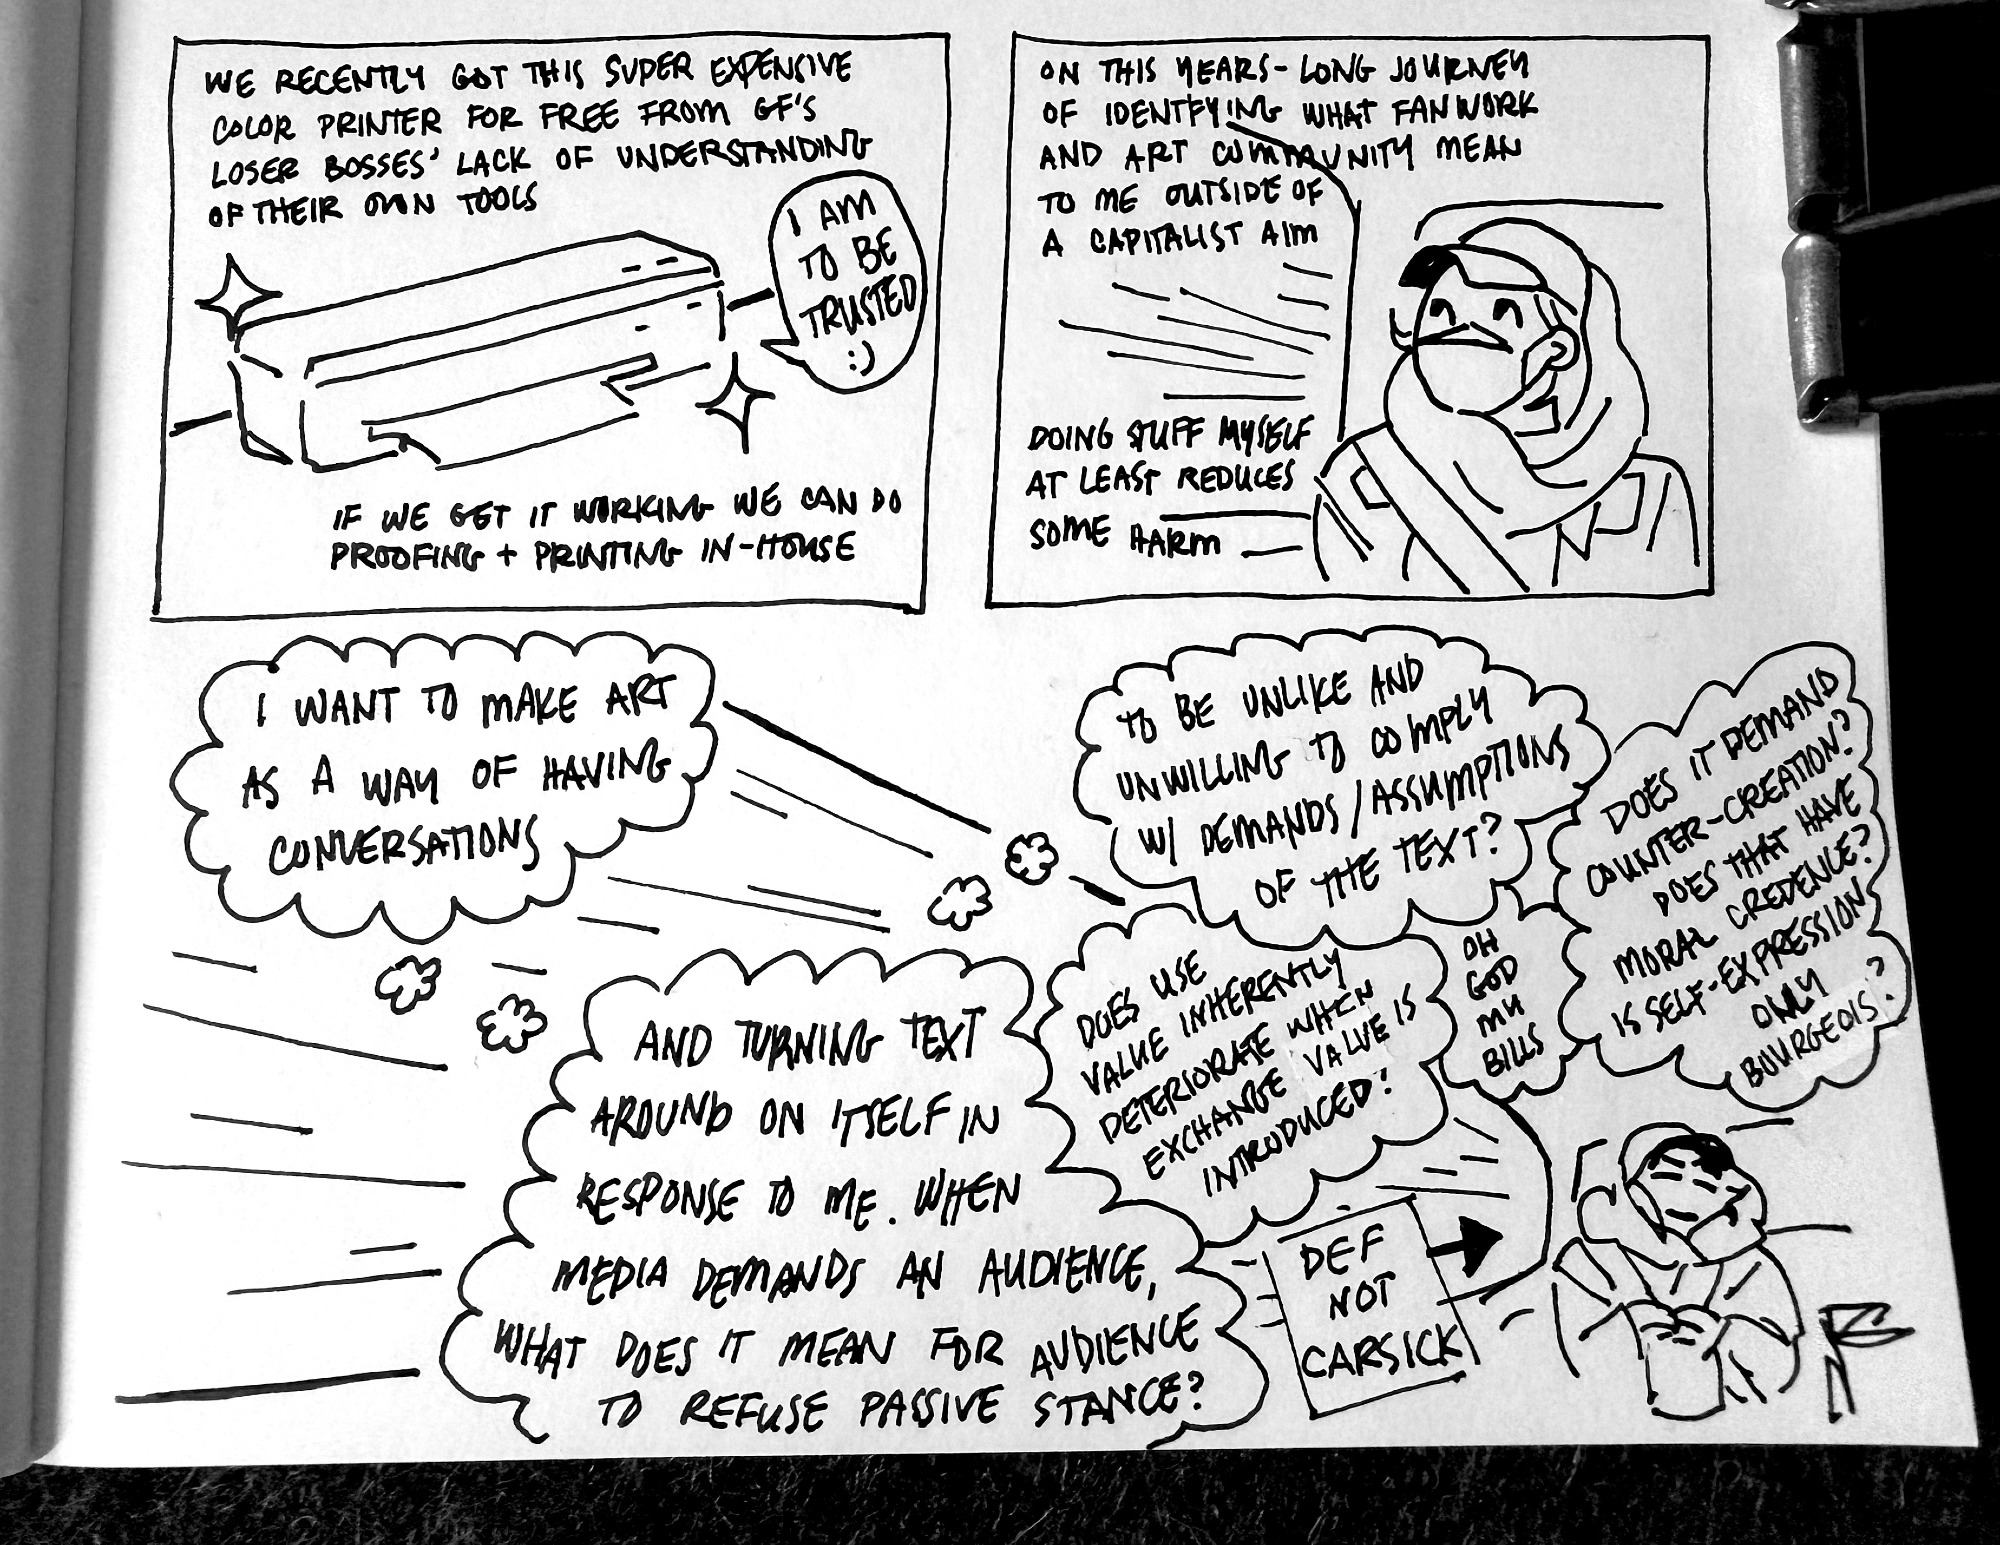 WE RECENTLY GOT THIS SUPER EXPENSIVE
COLOR PRINTER FOR FREE FROM GF'S
LOSER BOSSES' LACK OF UNDERSTANDING
OF THEIR OWN TOOLS
I AM
TO BE
TRUSTED
:)
IF WE GET IT WORKING WE CAN DO
PROOFING + PRINTING IN-HOUSE
ON THIS YEARS-LONG JOURNEY
OF IDENTFYING WHAT FANWORK
AND ART COMMUNITY MEAN
TO ME OUTSIDE OF
A CAPITALIST AIM
DOING STUFF MYSELF
AT LEAST REDUCES
SOME HARM
I WANT TO MAKE ART
AS A WAY OF HAVING
CONVERSATIONS
AND TURNING TEXT
AROUND ON ITSELF IN
RESPONSE TO ME. WHEN
MEDIA DEMANDS AN AUDIENCE,
WHAT DOES IT MEAN FOR AUDIENCE
TO REFUSE PASSIVE STANCE?
TO BE UNLIKE AND
UNWILLING TO COMPLY
W/ DEMANDS/ASSUMPTIONS
OF THE TEXT?
DOES USE
VALUE INHERENTLY
DETERIORATE WHEN
EXCHANGE VALUE IS
INTRODUCED?
OH
GOD
MY
BILLS
DOES IT DEMAND
COUNTER-CREATION?
DOES THAT HAVE
MORAL CREDENCE?
IS SELF-EXPRESSION
ONLY
BOURGEOIS?
DEF
NOT
CARSICK